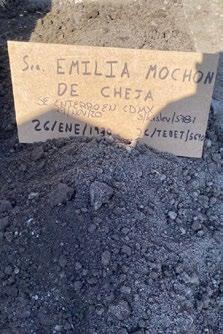 Sra. EMILIA MOCHON
DE CHEJA
SE ENTERRO EN CDMX
/5781
26/ENE/19 /TEBET/569